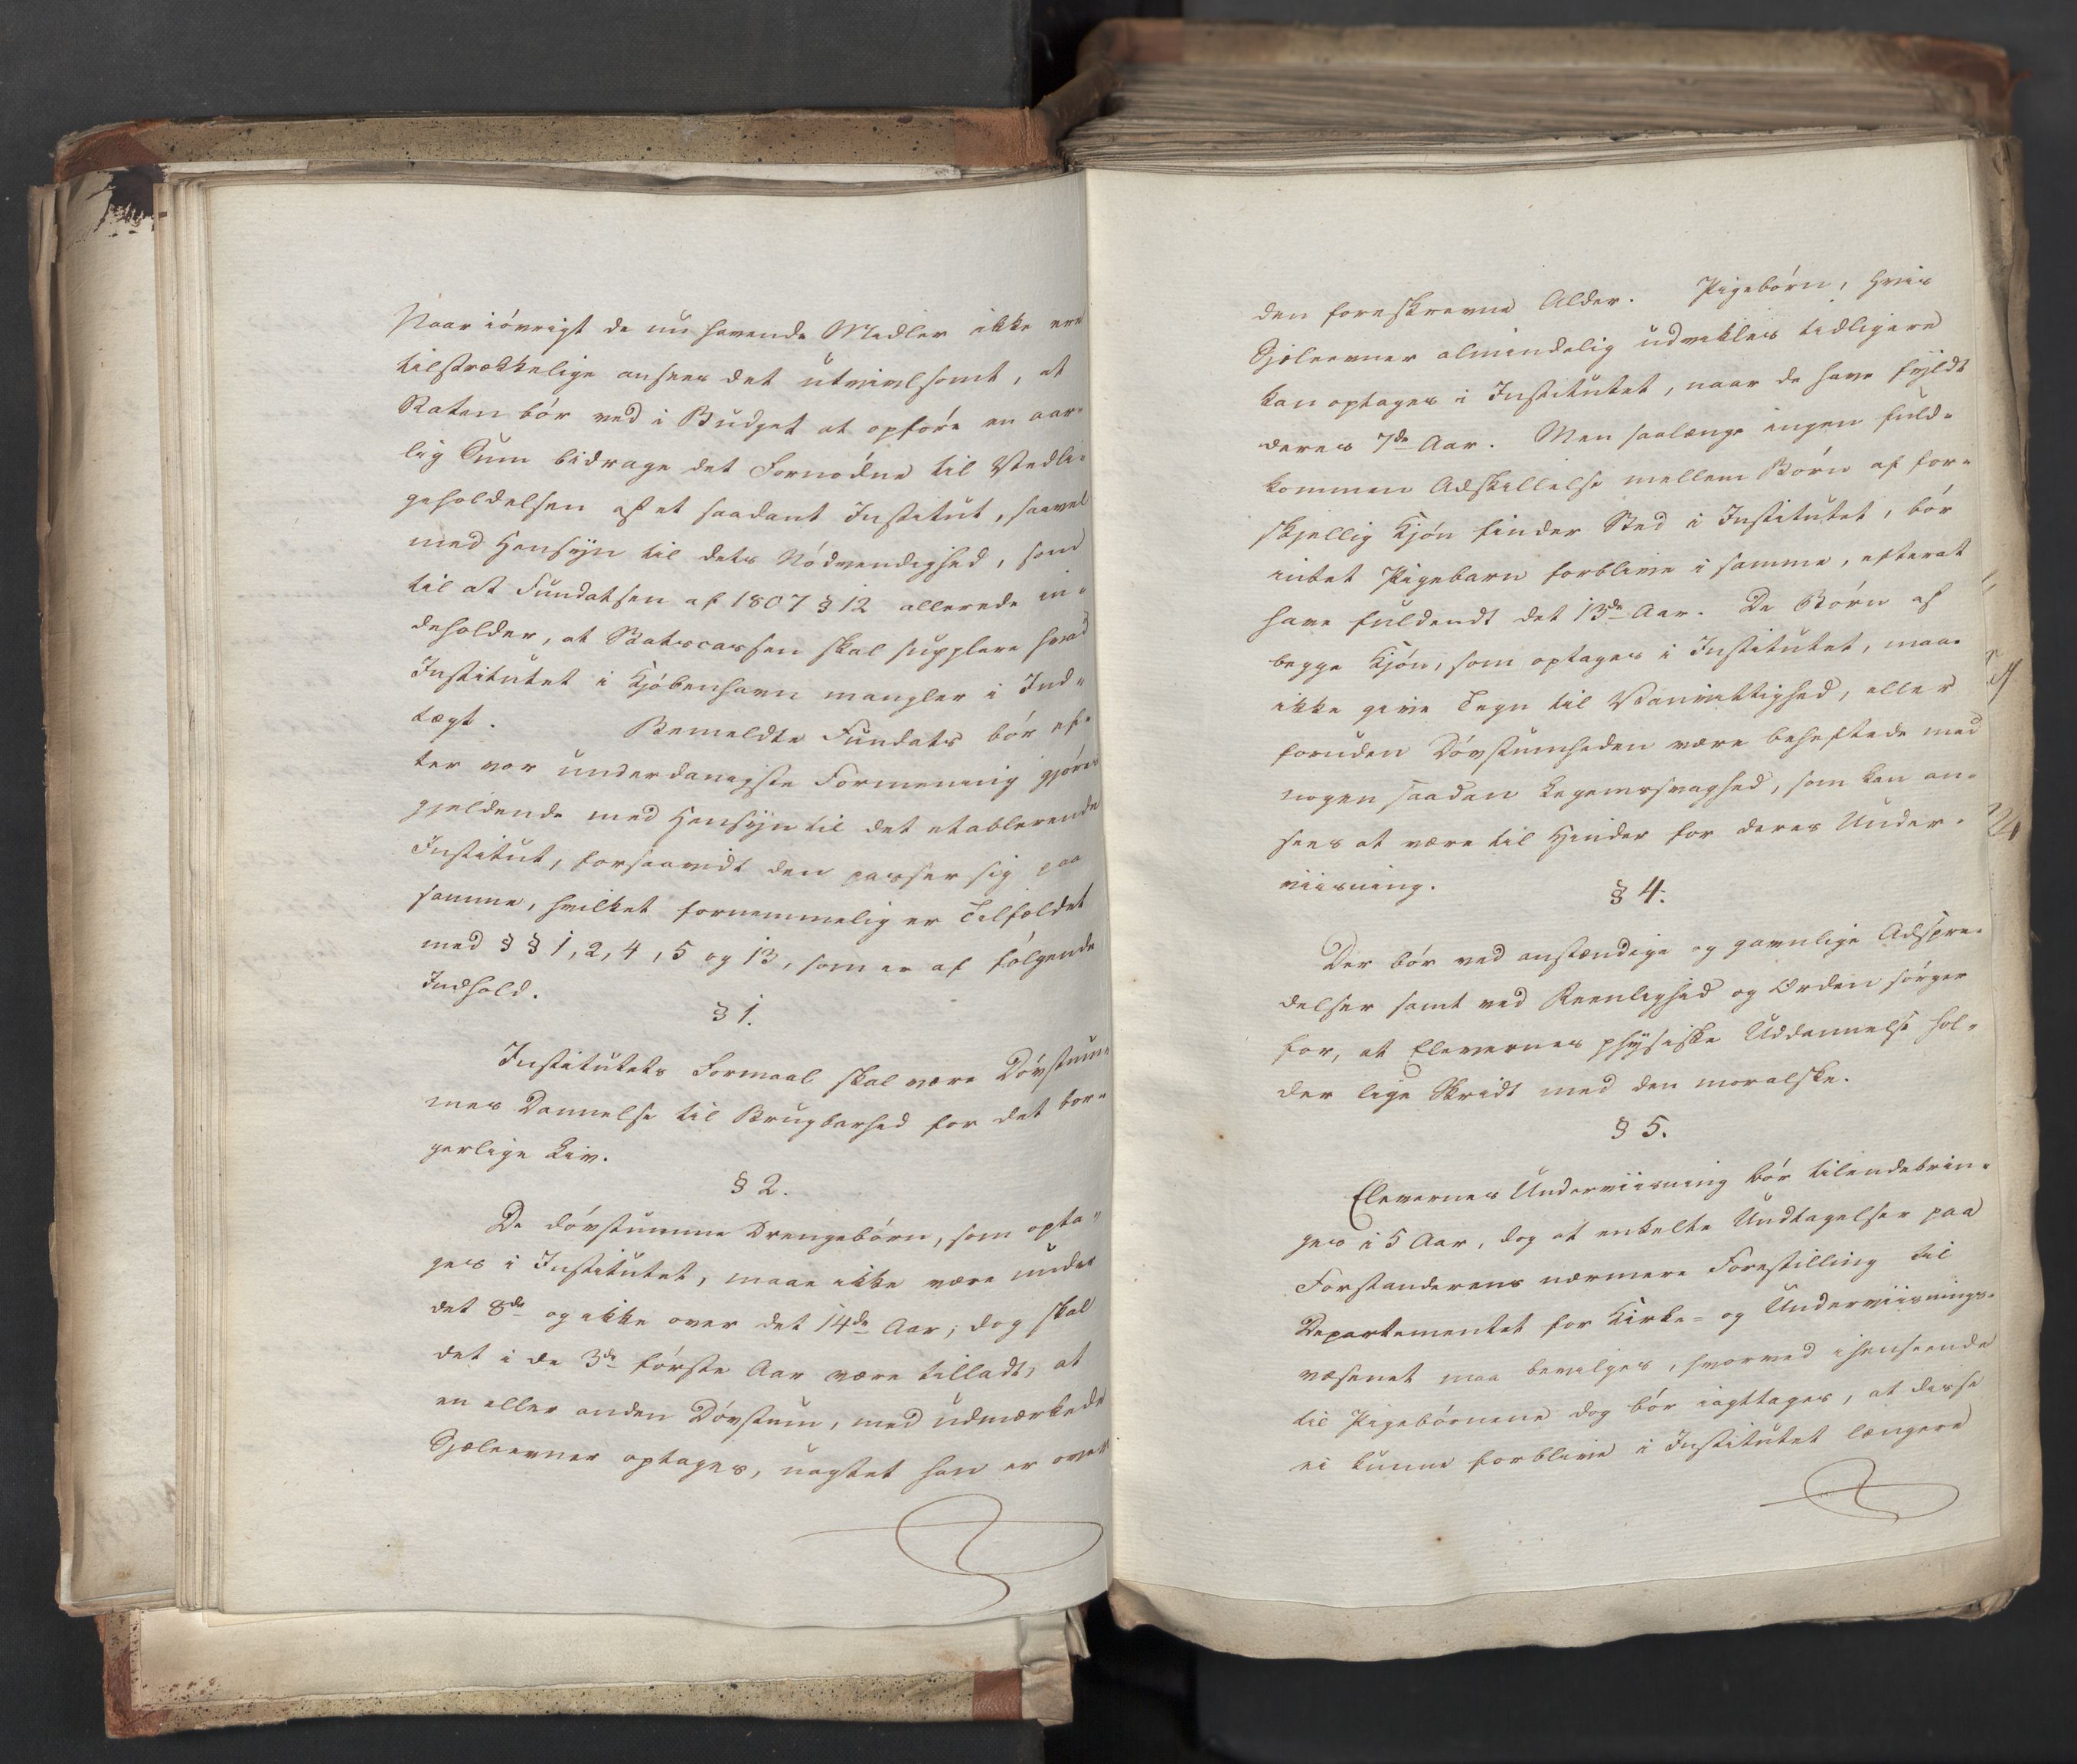 Naar iøvrigt de nu havende Midler ikke ere
tilstrækkelige ansees det utvivlsomt, at
Staten bør ved i Budget at opføre en aar-
lig Sum bidrage det Fornødne til Vedli-
geholdelsen af et saadant Institut, saavel
med Hensyn til dets Nødvendighed, som
til at Fundatsen af 1807 § 12 allerede in-
deholder, at Statscassen skal supplere hvad
Institutet i Kjøbenhavn mangler i Ind-
tægt. Bemeldte Fundats bør ef-
ter vor underdanigste Formening gjøres
gjeldende med Hensyn til det etablerende
Institut, forsaavidt den passer sig paa
samme, hvilket fornemmelig er Tilfældet
med § § 1, 2, 4, 5 og 13, som er af følgende
Indhold.
§ 1.
Institutets Formaal skal være Døvstum-
mes Dannelse til Brugbarhed for det bor-
gerlige Liv.
§ 2.
De døvstumme Drengebørn, som opta-
ges i Institutet, maae ikke være under
det 8de og ikke over det 14de Aar; dog skal
det i de 3de første Aar være tilladt, at
en eller anden Døvstum, med udmærkede
Sjæleevner optages, uagtet han er over
den foreskrevne Alder. Pigebørn, hvis
Sjæleevner almindelig udvikles tidligere
kan optages i Institutet, naar de have fyldt
deres 7de Aar. Men saalænge ingen fuld-
kommen Adskillelse mellem Børn af for-
skjellig Kjøn finder Sted i Institutet, bør
intet Pigebarn forblive i samme, efterat
have fuldendt det 13de Aar. De Børn af
begge Kjøn, som optages i Institutet, maae
ikke give Tegn til Vanvittighed, eller
foruden Døvstumheden være beheftede med
nogen saadan Legemssvaghed, som kan an-
sees at være til Hinder for deres Under-
viisning.
§ 4.
Der bør ved anstændige og gavnlige Adspre-
delser samt ved Reenlighed og Orden sørges
for, at Elevernes physiske Uddannelse hol-
der lige Skridt med den moralske.
§ 5.
Elevernes Underviisning bør tilendebrin-
ges i 5 Aar, dog at enkelte Undtagelser paa
Forstanderens nærmere Forestilling til
Departementet for Kirke- og Underviisnings-
væsenet maa bevilges, hvorved ihenseende
til Pigebørnene dog bør iagttages, at disse
ei kunne forblive i Institutet længere